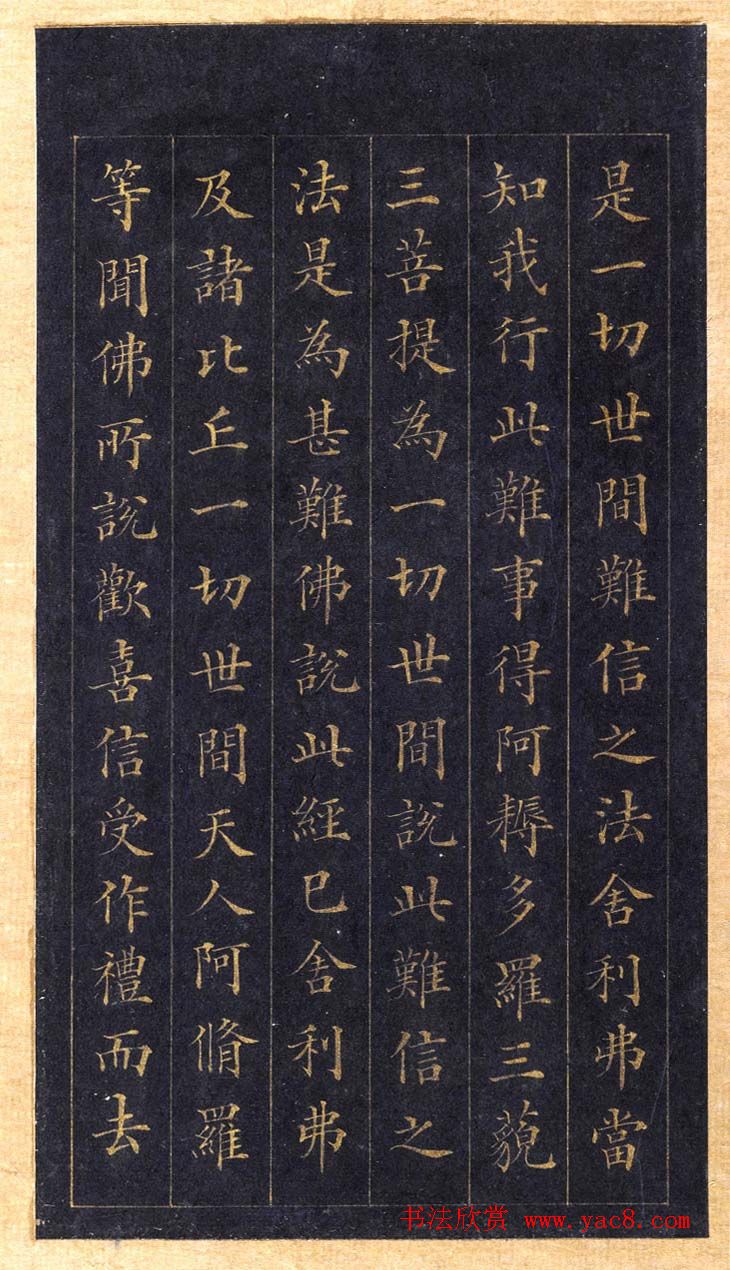 是一切世間難信之法舍利弗當
知我行此難事得阿耨多羅三藐
三菩提為一切世間說此難信之
法是為甚難佛說此經已舍利弗
及諸比丘一切世間天人阿脩羅
等聞佛所說歡喜信受作禮而去
书法欣赏 www.yac8.com